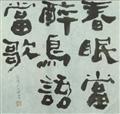 春眠當
醉鳥語
當歌